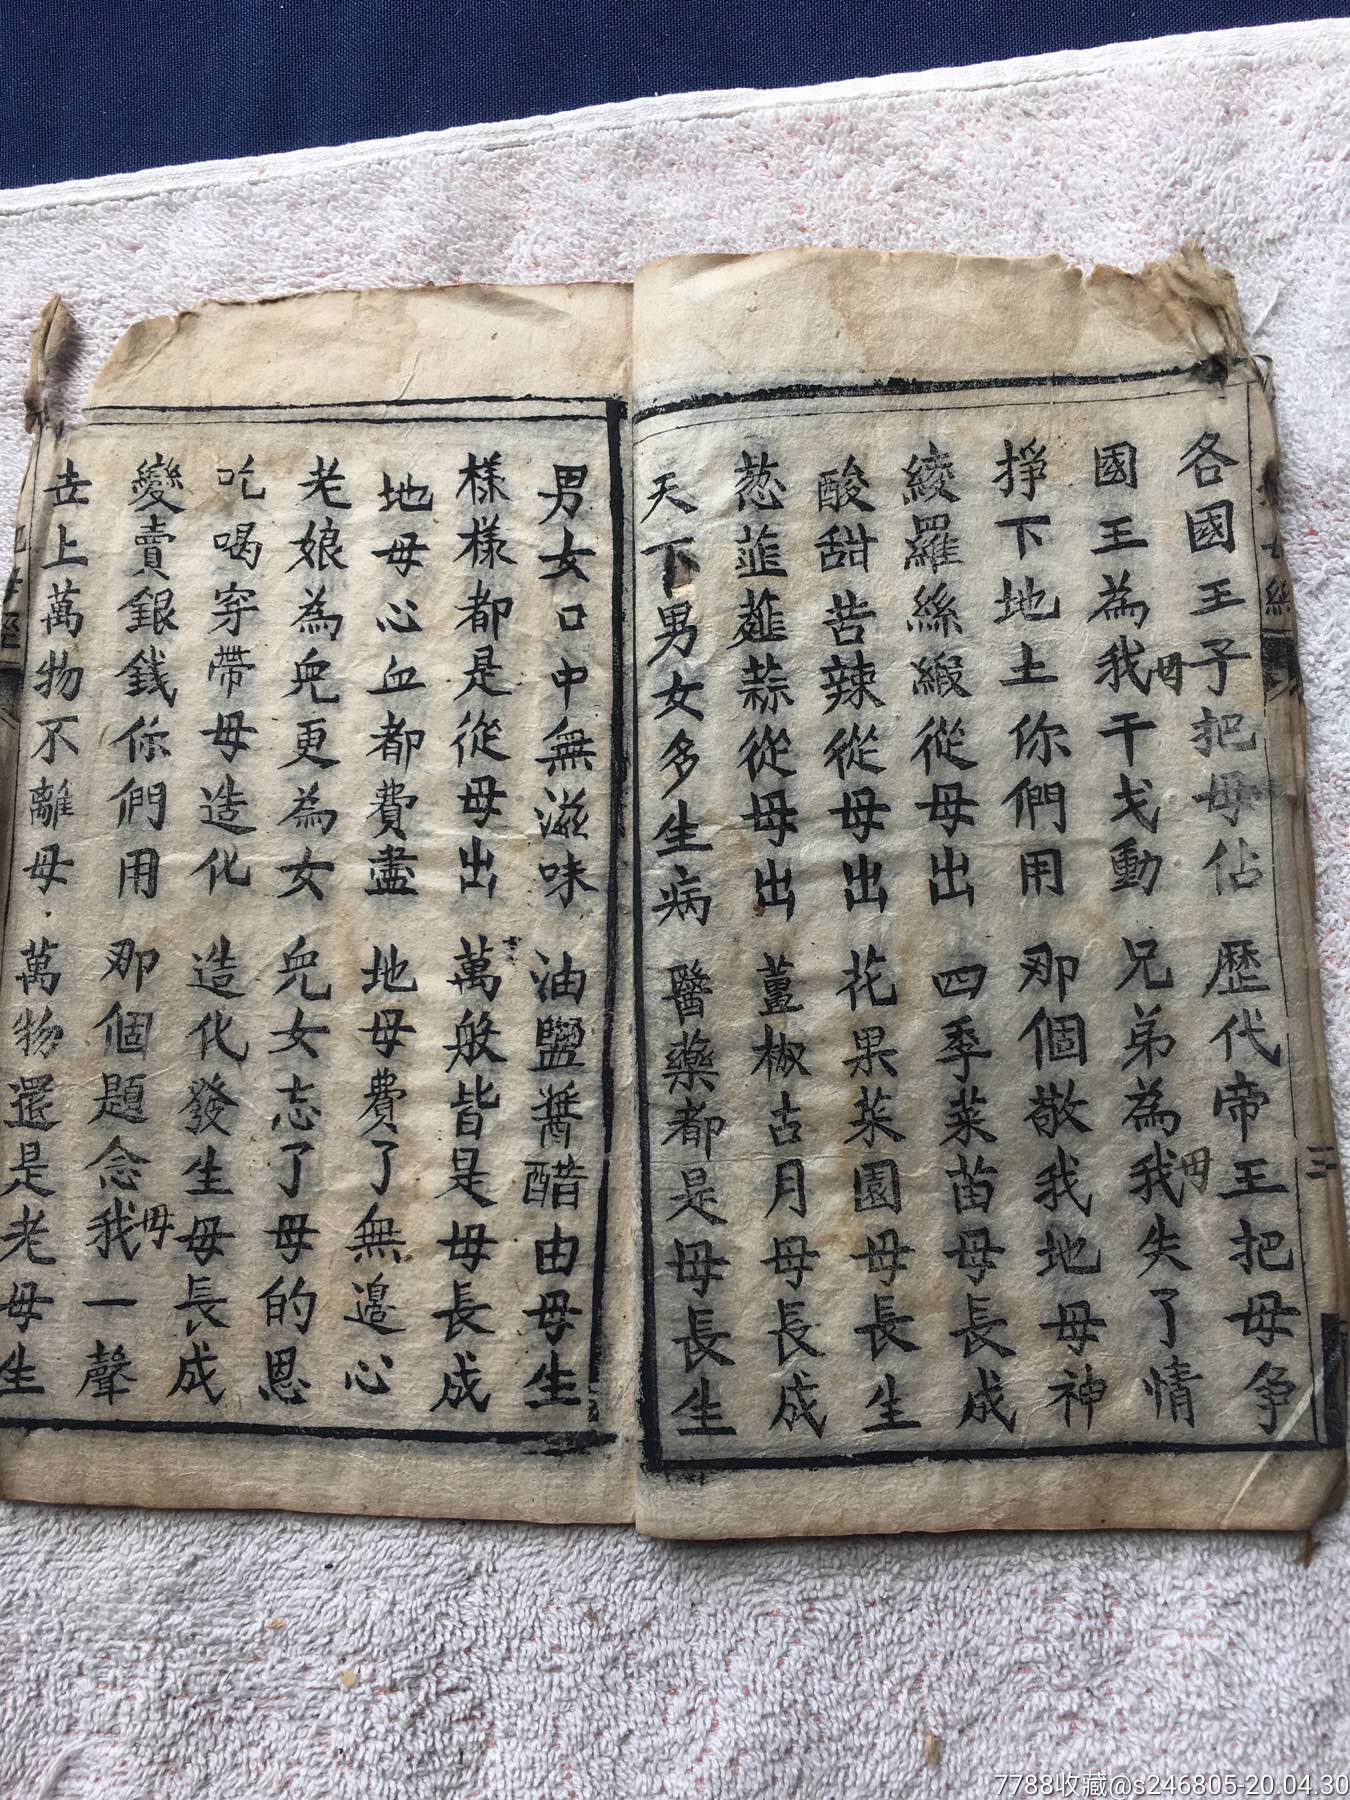 各國王子把母佔 歷代帝王把母争
國王為我母干戈動 兄弟為我母失了情
掙下地土你們用 那個敬我地母神
綾羅絲緞從母出 四季菜苗母長成
酸甜苦辣從母出 花果菜園母長生
葱韮薤蒜從母出 薑椒古月母長成
天下男女多生病 醫藥都是母長生
男女口中無滋味 油鹽醬醋由母生
樣樣都是從母出 萬般皆是母長成
地母心血都費盡 地母費了無邊心
老娘為兒更為女 兒女忘了母的恩
吃喝穿帶母造化 造化發生母長成
變賣銀錢你們用 那個題念我母一聲
世上萬物不離母 萬物還是老母生
三
7788收藏@s246805-20.04.30